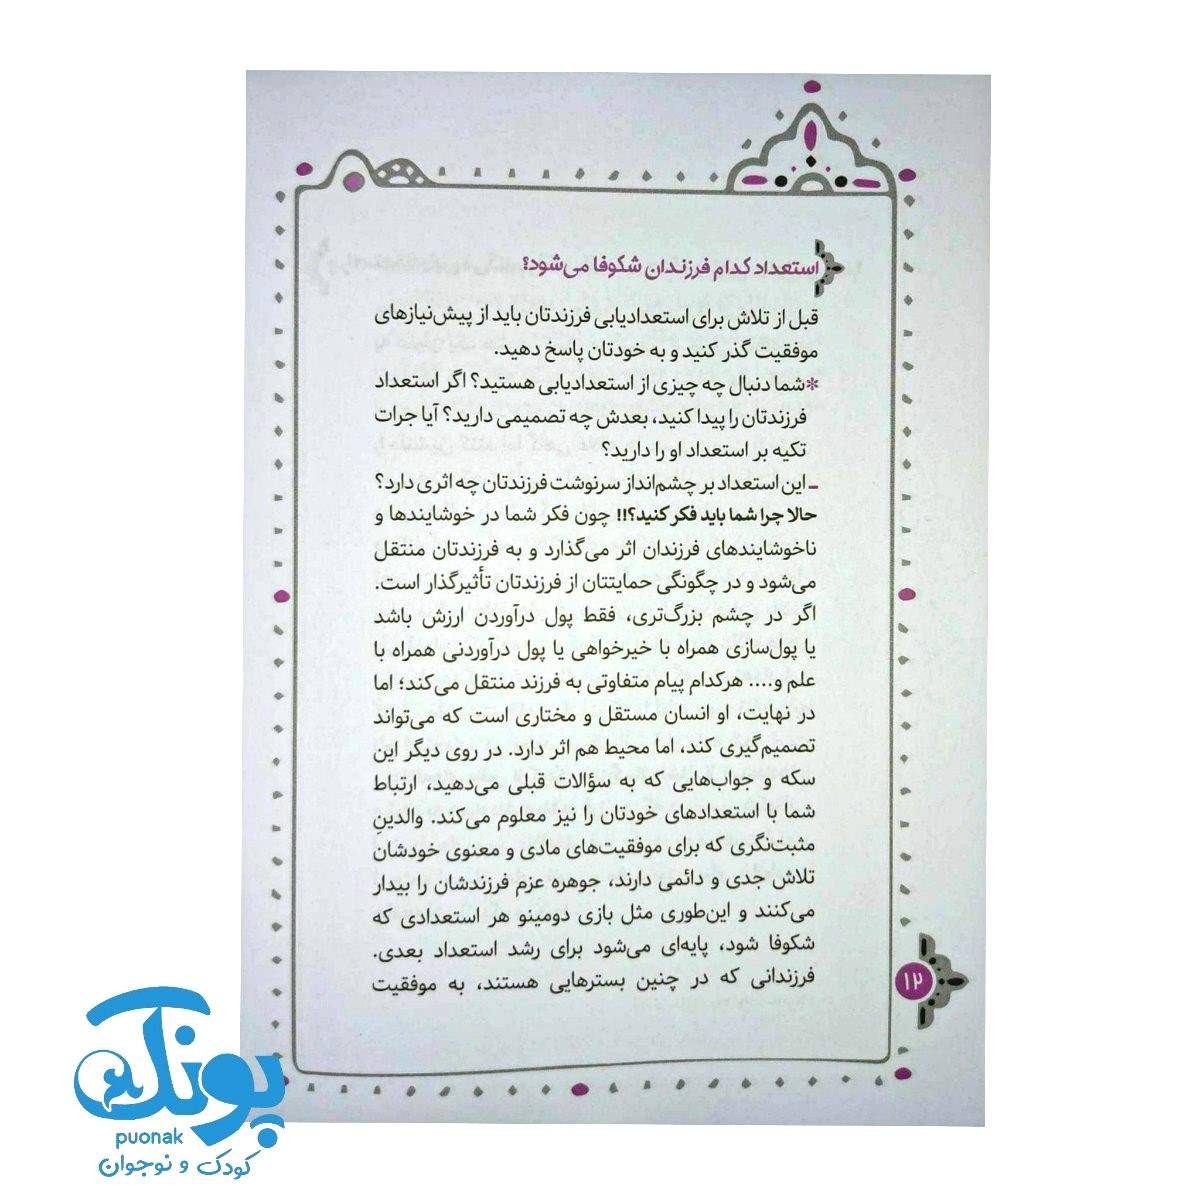 استعداد کدام فرزندان شکوفا می‌شود؟
قبل از تلاش برای استعدادیابی فرزندتان باید از پیش‌نیازهای
موفقیت گذر کنید و به خودتان پاسخ دهید.
*شما دنبال چه چیزی از استعدادیابی هستید؟ اگر استعداد
فرزندتان را پیدا کنید، بعدش چه تصمیمی دارید؟ آیا جرات
تکیه بر استعداد او را دارید؟
- این استعداد بر چشم‌انداز سرنوشت فرزندتان چه اثری دارد؟
حالا چرا شما باید فکر کنید؟!! چون فکر شما در خوشایندها و
ناخوشایندهای فرزندان اثر می‌گذارد و به فرزندتان منتقل
می‌شود و در چگونگی حمایتتان از فرزندتان تأثیرگذار است.
اگر در چشم بزرگ‌تری، فقط پول درآوردن ارزش باشد
یا پول‌سازی همراه با خیرخواهی یا پول درآوردنی همراه با
علم و.... هرکدام پیام متفاوتی به فرزند منتقل می‌کند؛ اما
در نهایت، او انسان مستقل و مختاری است که می‌تواند
تصمیم‌گیری کند، اما محیط هم اثر دارد. در روی دیگر این
سکه و جواب‌هایی که به سؤالات قبلی می‌دهید، ارتباط
شما با استعدادهای خودتان را نیز معلوم می‌کند. والدینِ
مثبت‌نگری که برای موفقیت‌های مادی و معنوی خودشان
تلاش جدی و دائمی دارند، جوهره عزم فرزندشان را بیدار
می‌کنند و این‌طوری مثل بازی دومینو هر استعدادی که
شکوفا شود، پایه‌ای می‌شود برای رشد استعداد بعدی.
فرزندانی که در چنین بسترهایی هستند، به موفقیت
۱۲
پونک
puonak
کودک و نوجوان